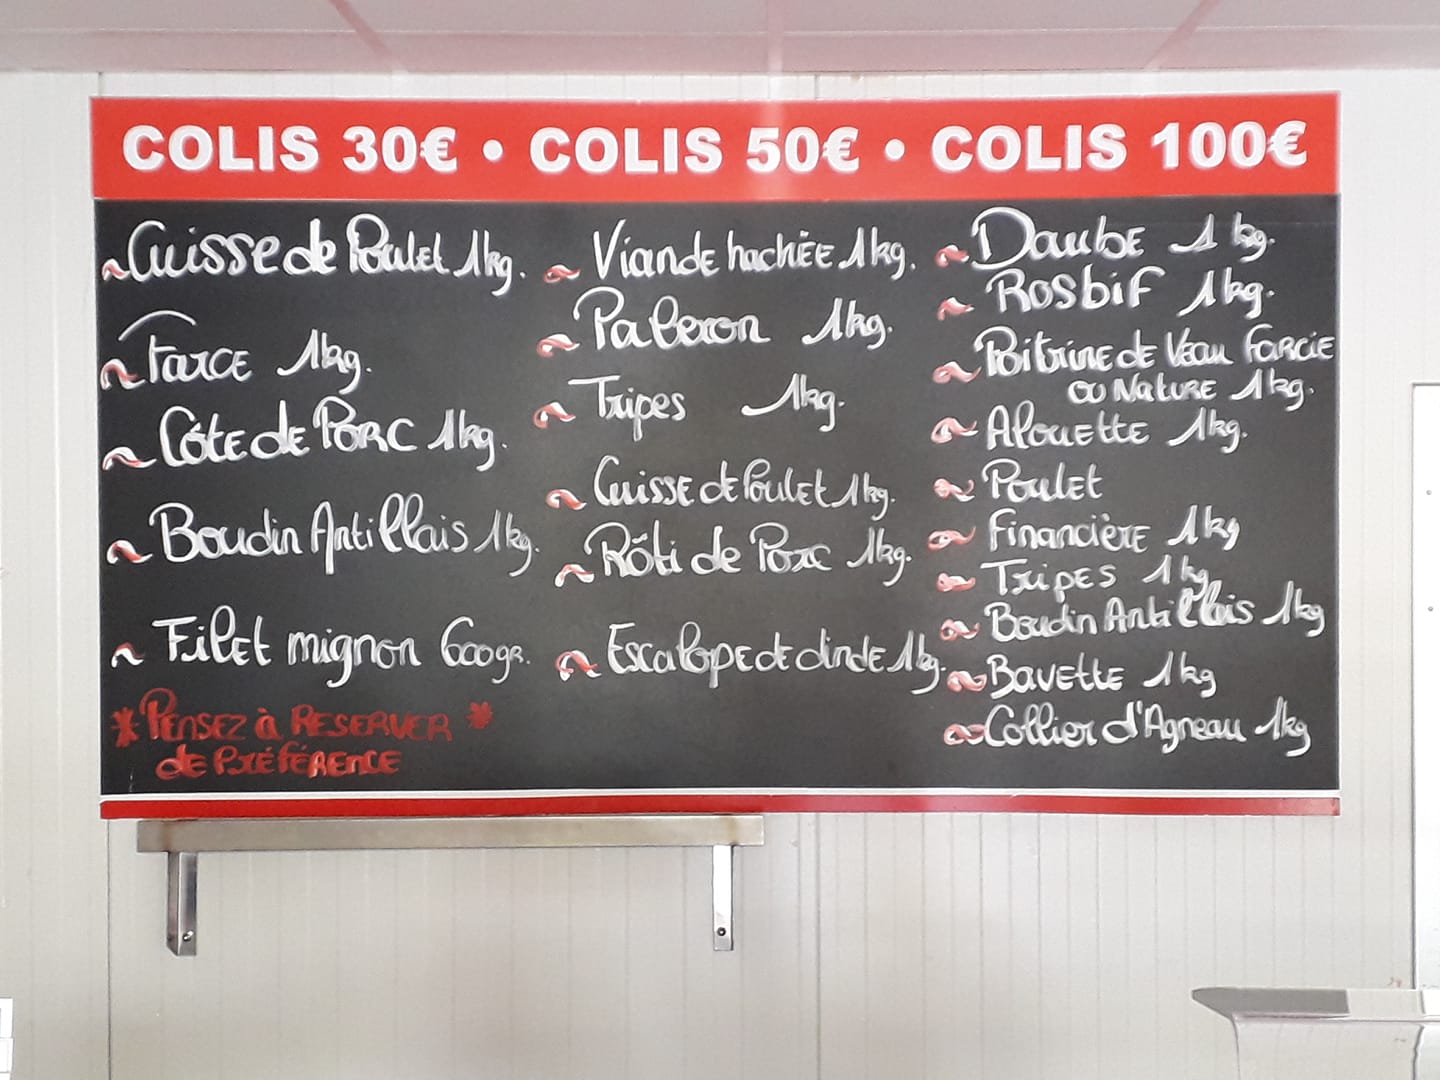 COLIS 30€ • COLIS 50€ • COLIS 100€
Cuisse de Poulet 1kg.
Farce 1kg.
Côte de Porc 1kg.
Boudin Antillais 1kg.
Filet mignon 600gr.
*Pensez à Reserver *
de Préférence
Viande hachée 1kg.
Paleron 1kg.
Tripes 1kg.
Cuisse de Poulet 1kg.
Rôti de Porc 1kg.
Escalope de dinde 1kg.
Daube 1 kg.
Rosbif 1kg.
Poitrine de Veau Farcie
ou Nature 1kg.
Alouette 1kg.
Poulet
Financière 1kg
Tripes 1kg
Boudin Antillais 1kg
Bavette 1kg
Collier d'Agneau 1kg